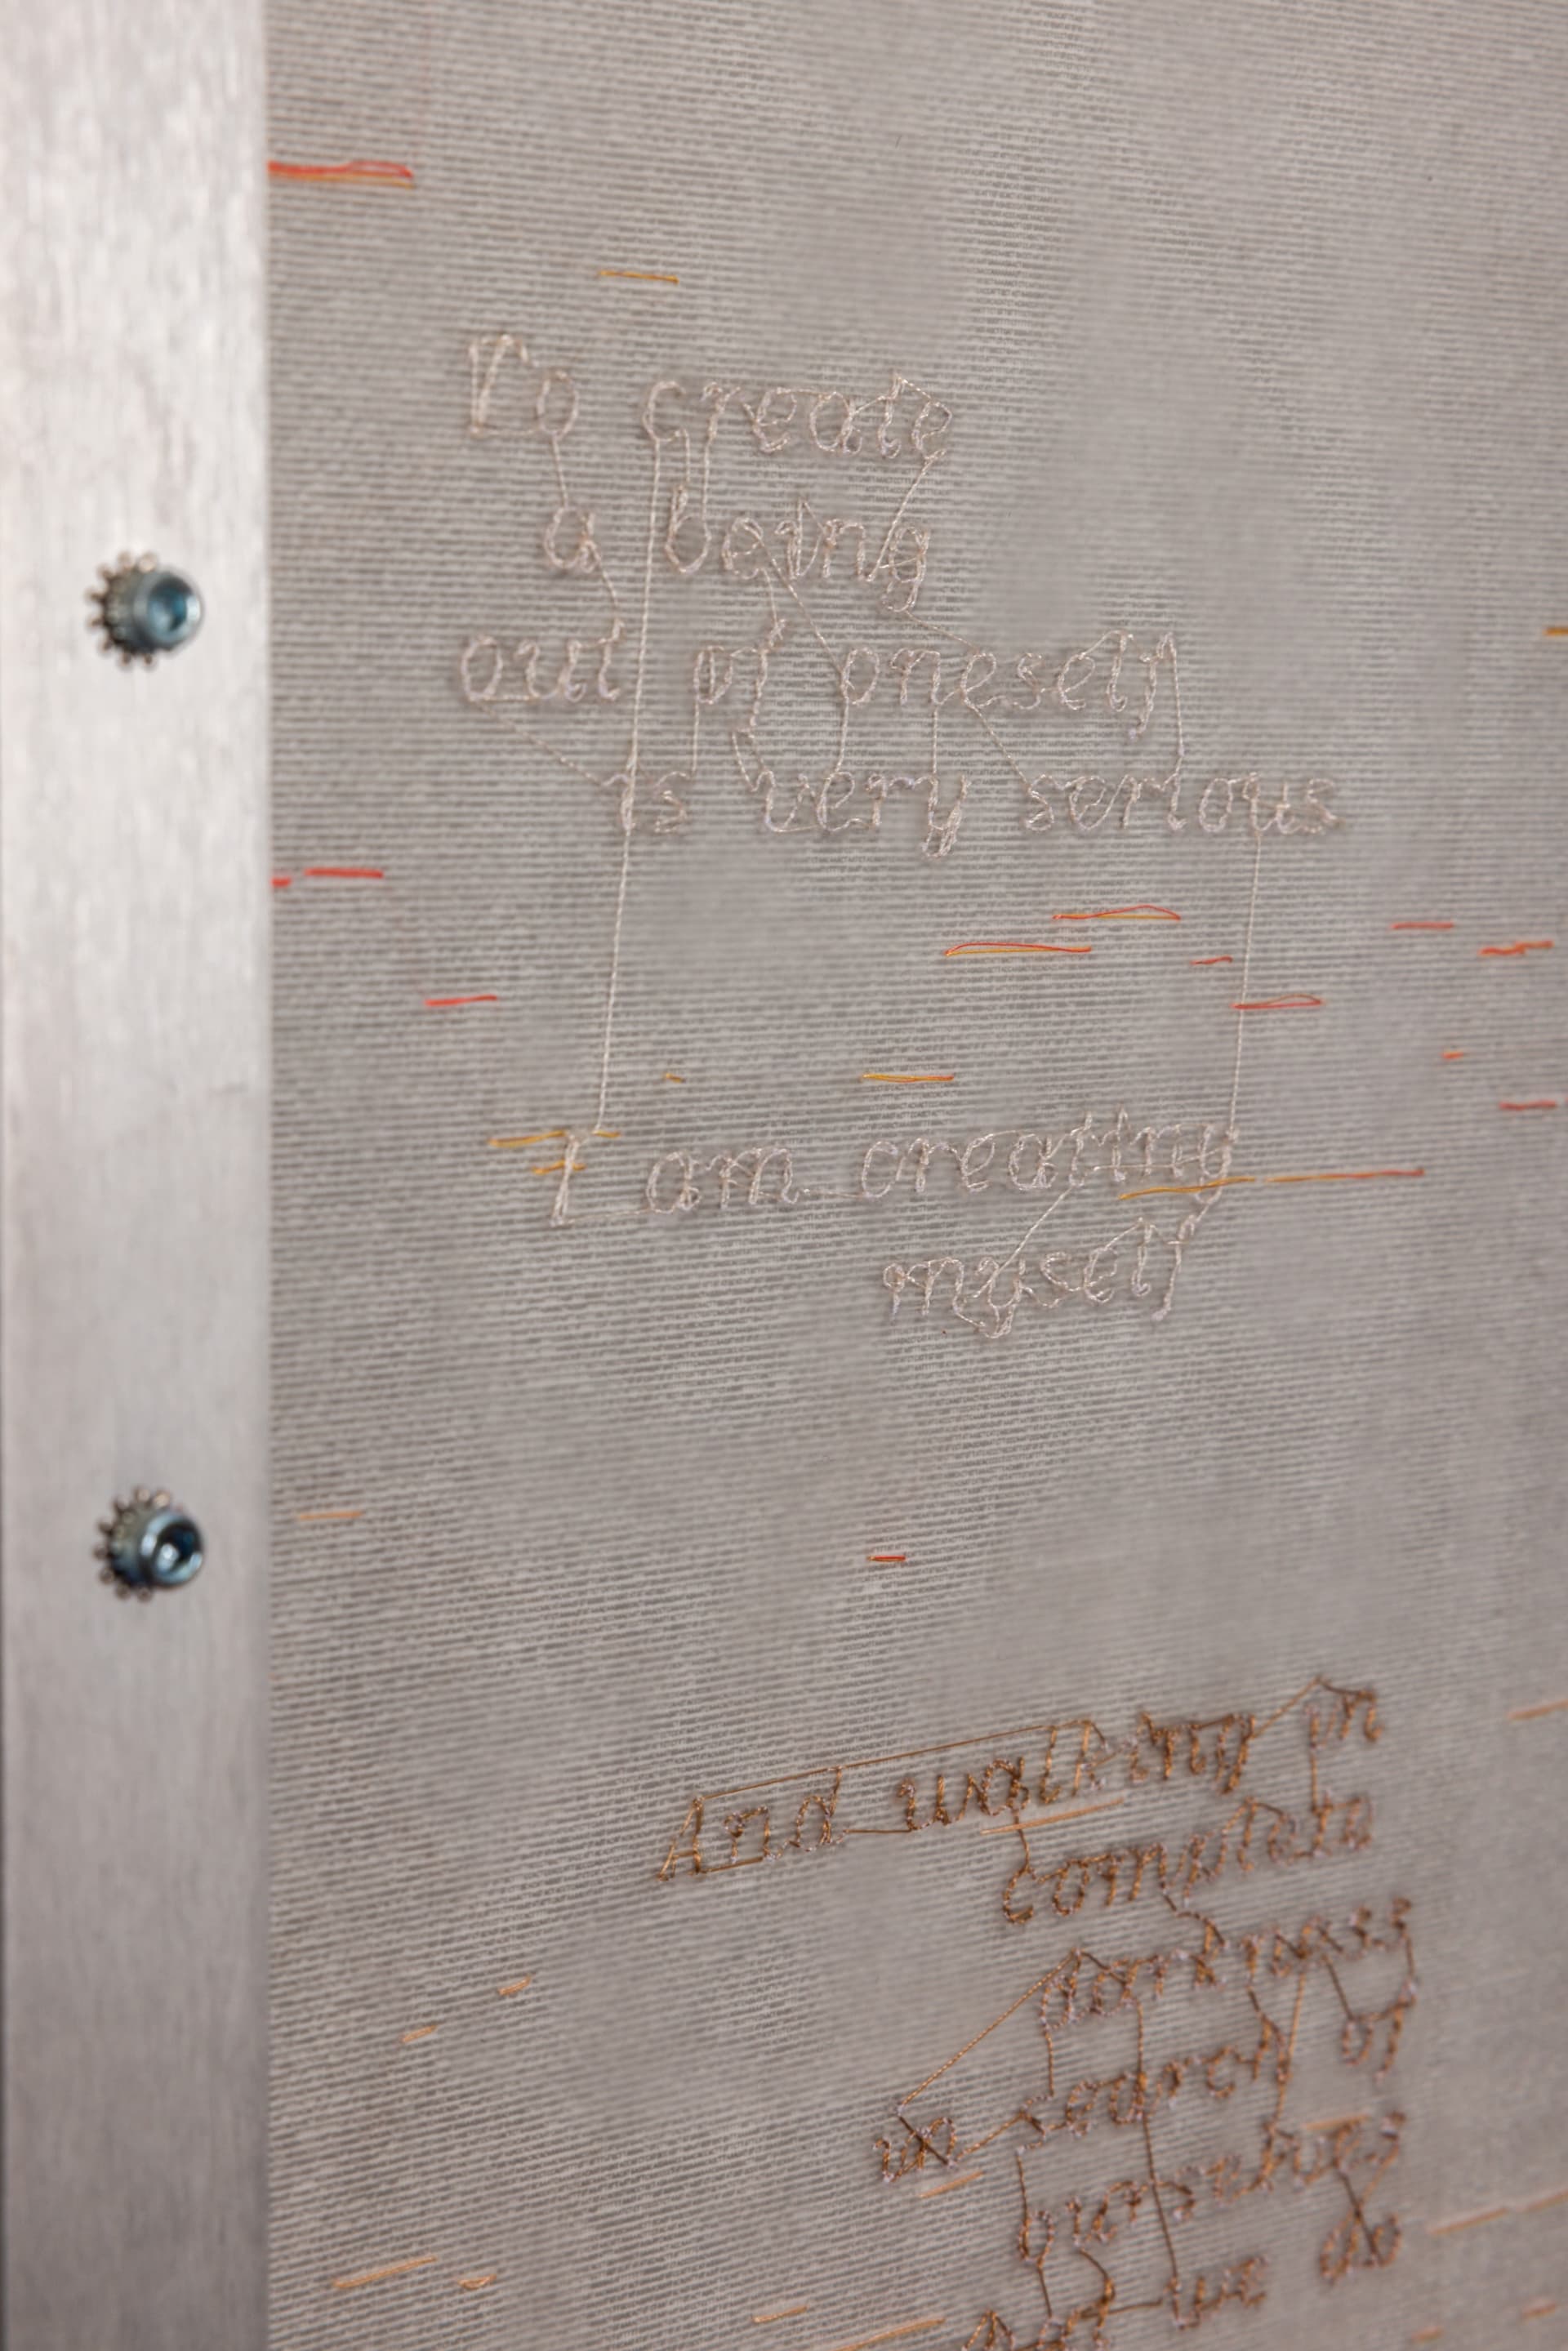 To create
a being
out of oneself
is very serious
I am creating
myself
And walking in
complete
darkness
in search of
ourselves
is what we do